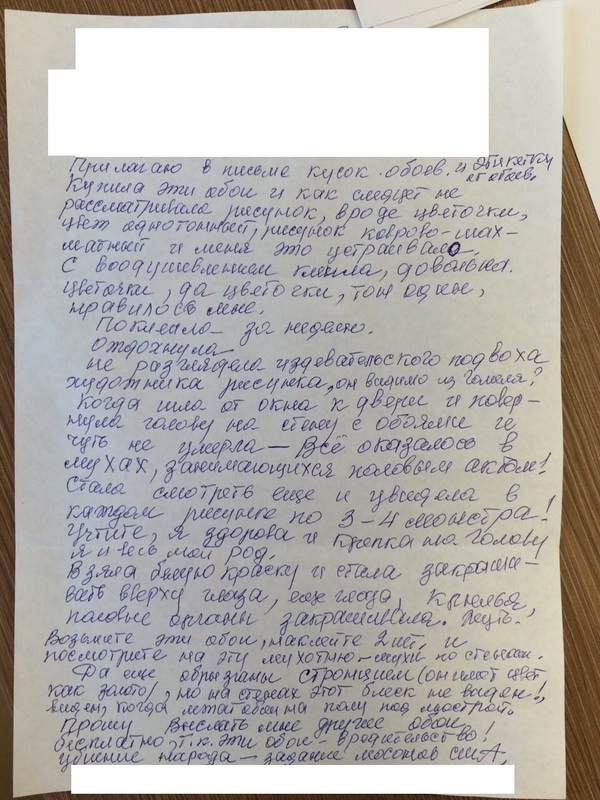 Прилагаю в письме кусок обоев и этикетку
от обоев.
Купила эти обои и как следует не
рассматривала рисунок, вроде цветочки,
цвет однотонный, рисунок коврово-шах-
матный и меня это устраивало.
С воодушевлением клеила, довольна.
Цветочки, да цветочки, тон один,
нравилось мне.
Поклеила за неделю.
Отдохнула
не разглядела издевательского подвоха
художника рисунка, он видимо из
Когда шла от окна к двери и повер-
нула голову на стену с обоями и
чуть не умерла — Всё оказалось в
мухах, занимающихся половым актом!
Стала смотреть еще и увидела в
каждом рисунке по 3-4 монстра!
Учтите, я здорова и крепка на голову
я и весь мой род.
Взяла белую краску и стала закраши-
вать вверху глаза, еще глаза, крылья,
половые органы закрашивала. Жуть.
Возьмите эти обои, наклейте 2 шт. и
посмотрите на эту мухотню — мухи по стенам.
Да еще обрызганы стронцием (он имеет цвет
как золото), но на стенах этот блеск не виден!,
виден, когда лежат обои на полу под люстрой.
Прошу выслать мне другие обои
бесплатно, т.к. эти обои — вредительство!
убиение народа — задание масонов США.